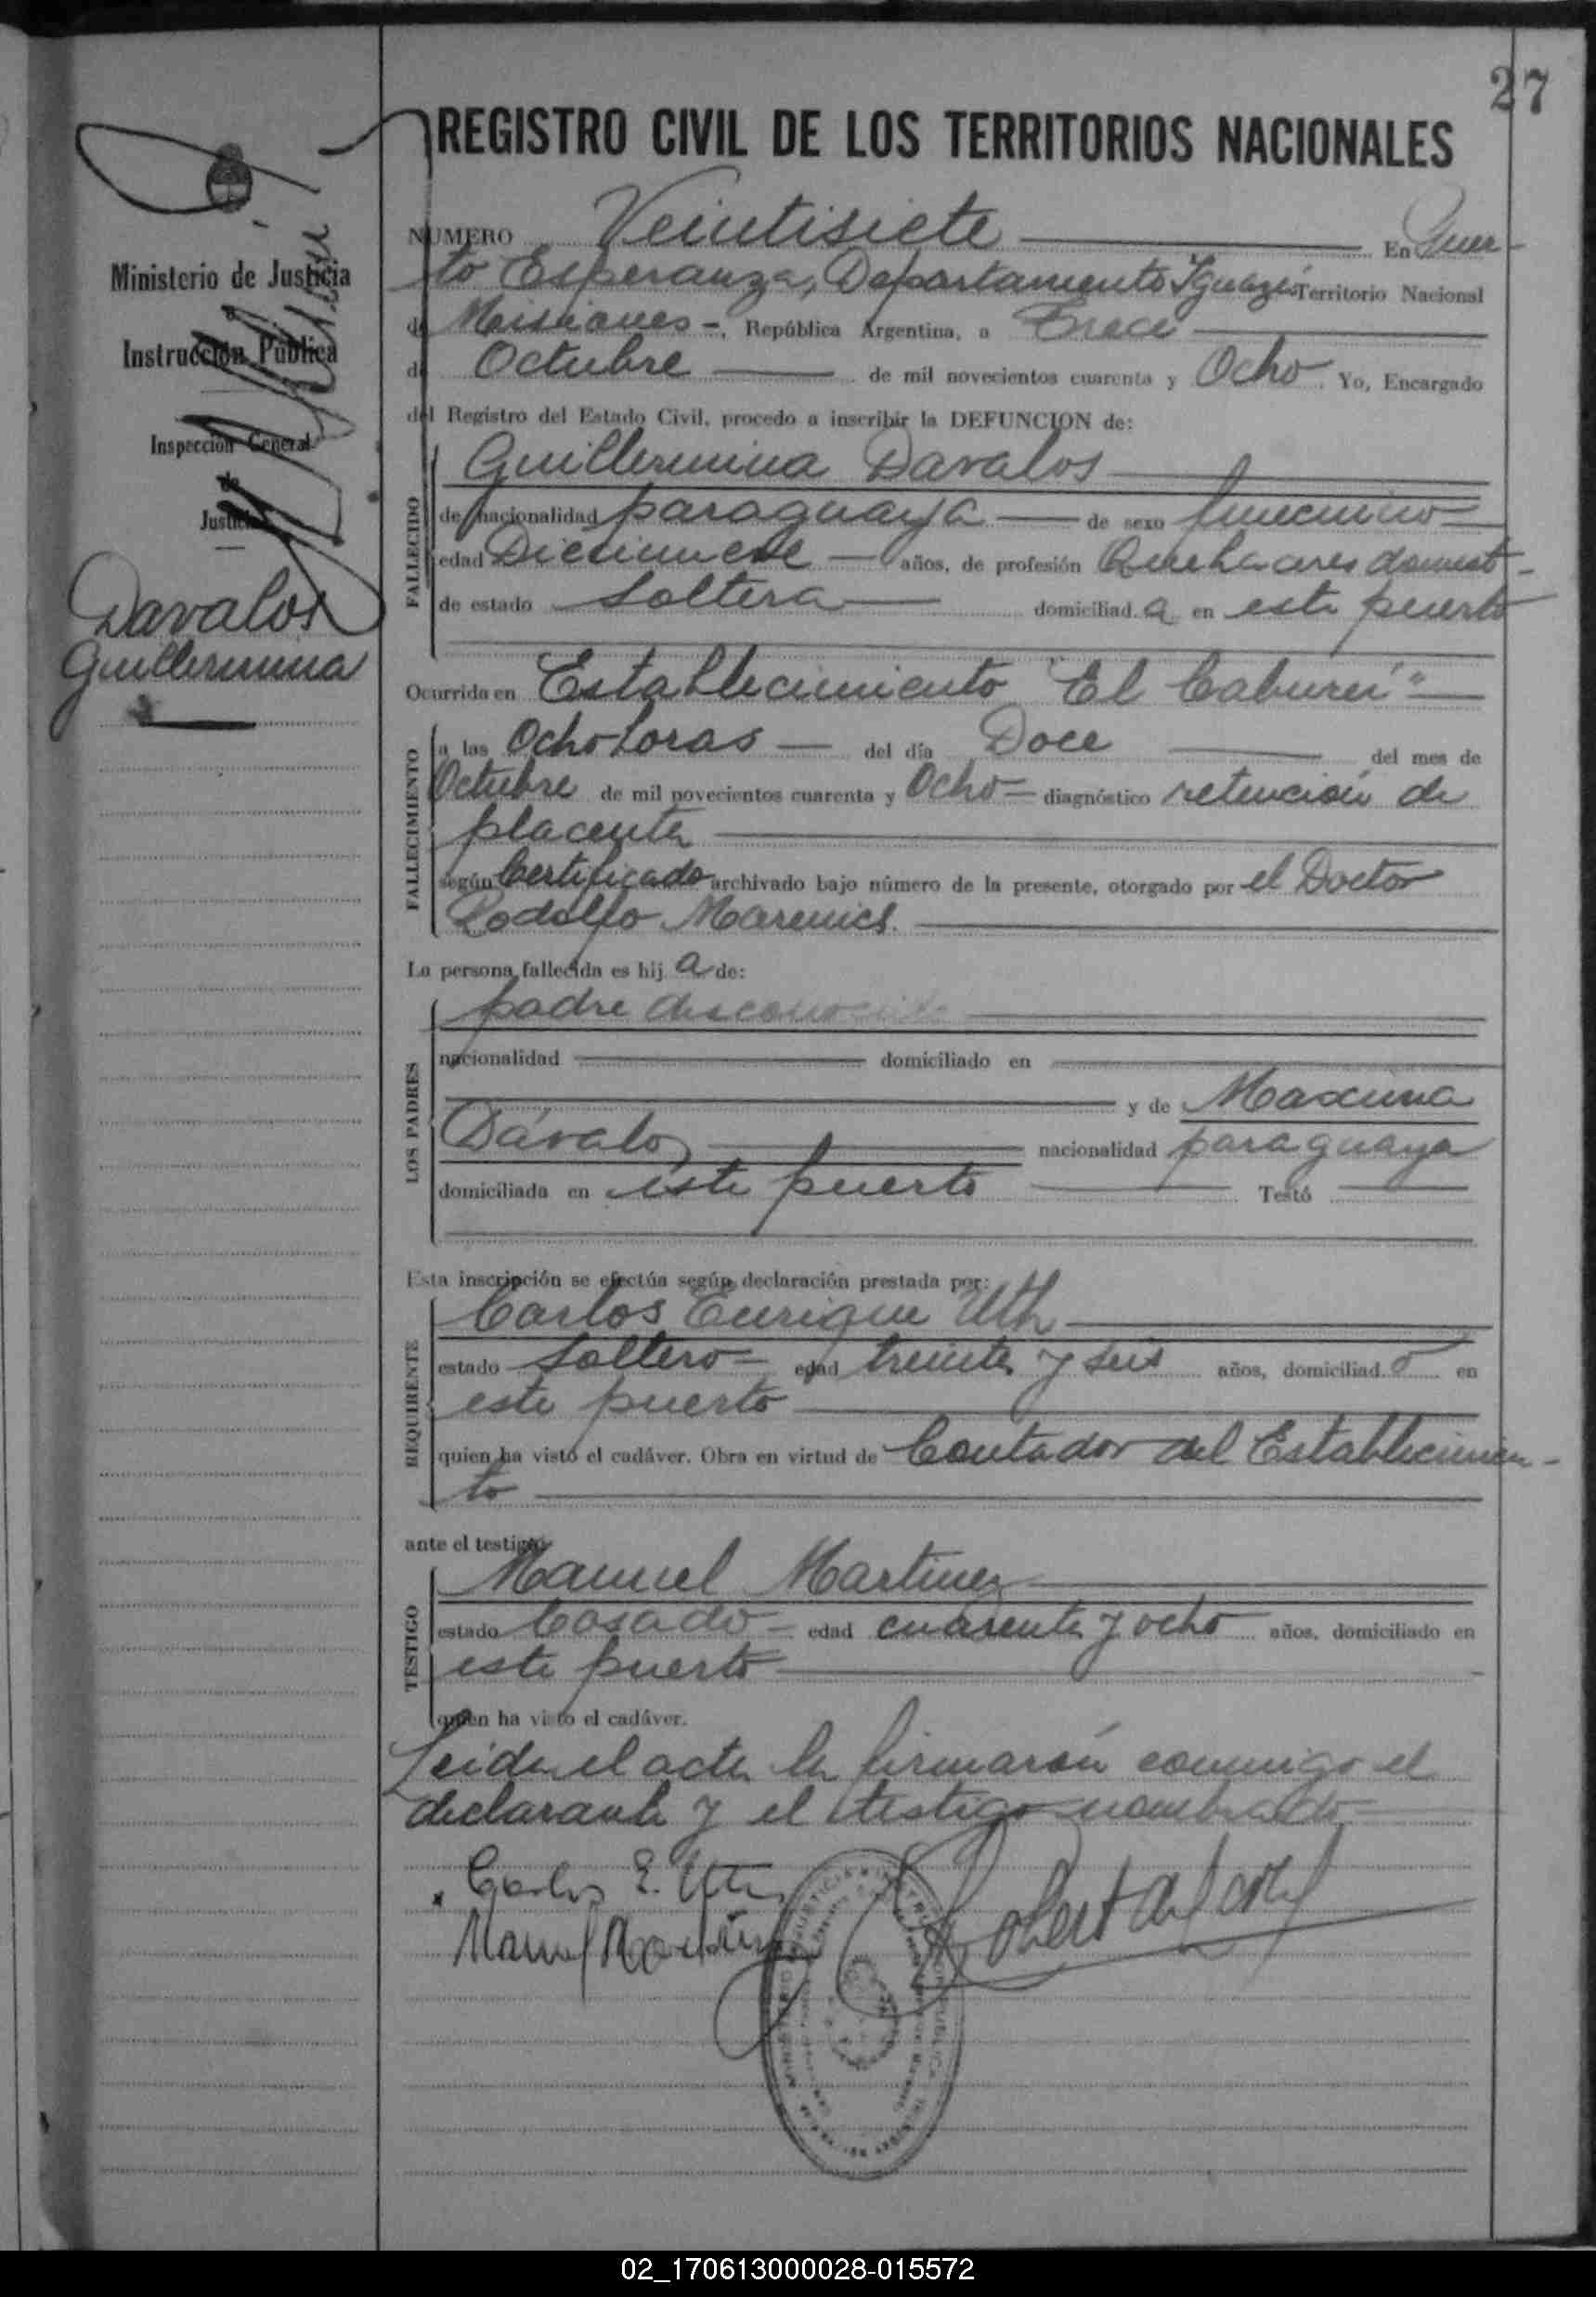 27
REGISTRO CIVIL DE LOS TERRITORIOS NACIONALES
Ministerio de Justicia
Instrucción Pública
Inspección General
de
Justicia
Davalos
Guillermina
NUMERO Veintisiete En Puer-
to Esperanza, Departamento Iguazú Territorio Nacional
de Misiones -, República Argentina, a Trece
de Octubre de mil novecientos cuarenta y Ocho. Yo, Encargado
del Registro del Estado Civil, procedo a inscribir la DEFUNCION de:
FALLECIDO
Guillermina Davalos
de nacionalidad paraguaya de sexo
edad años, de profesión Quehaceres domest-
de estado Soltera domiciliad a en este puerto
Ocurrida en Establecimiento "El Caburei"
FALLECIMIENTO
a las Ocho horas del día Doce del mes de
Octubre de mil novecientos cuarenta y Ocho diagnóstico retención de
placenta
según Certificado archivado bajo número de la presente, otorgado por el Doctor
Rodolfo
La persona fallecida es hij a de:
LOS PADRES
padre desconocido
nacionalidad domiciliado en
y de Maxima
Dávalos nacionalidad paraguaya
domiciliada en este puerto Testó
Esta inscripción se efectúa según declaración prestada por:
REQUIRENTE
Carlos Enrique Uth
estado Soltero edad treinta y seis años, domiciliad o en
este puerto
quien ha visto el cadáver. Obra en virtud de Contador del Establecimien-
to
ante el testigo
TESTIGO
Manuel Martinez
estado Casado edad cuarenta y ocho años, domiciliado en
este puerto
quien ha visto el cadáver.
Leida el acta la firmarón conmigo el
declarante y el testigo nombrado
Carlos E. Uth
Manuel Martinez
02_170613000028-015572